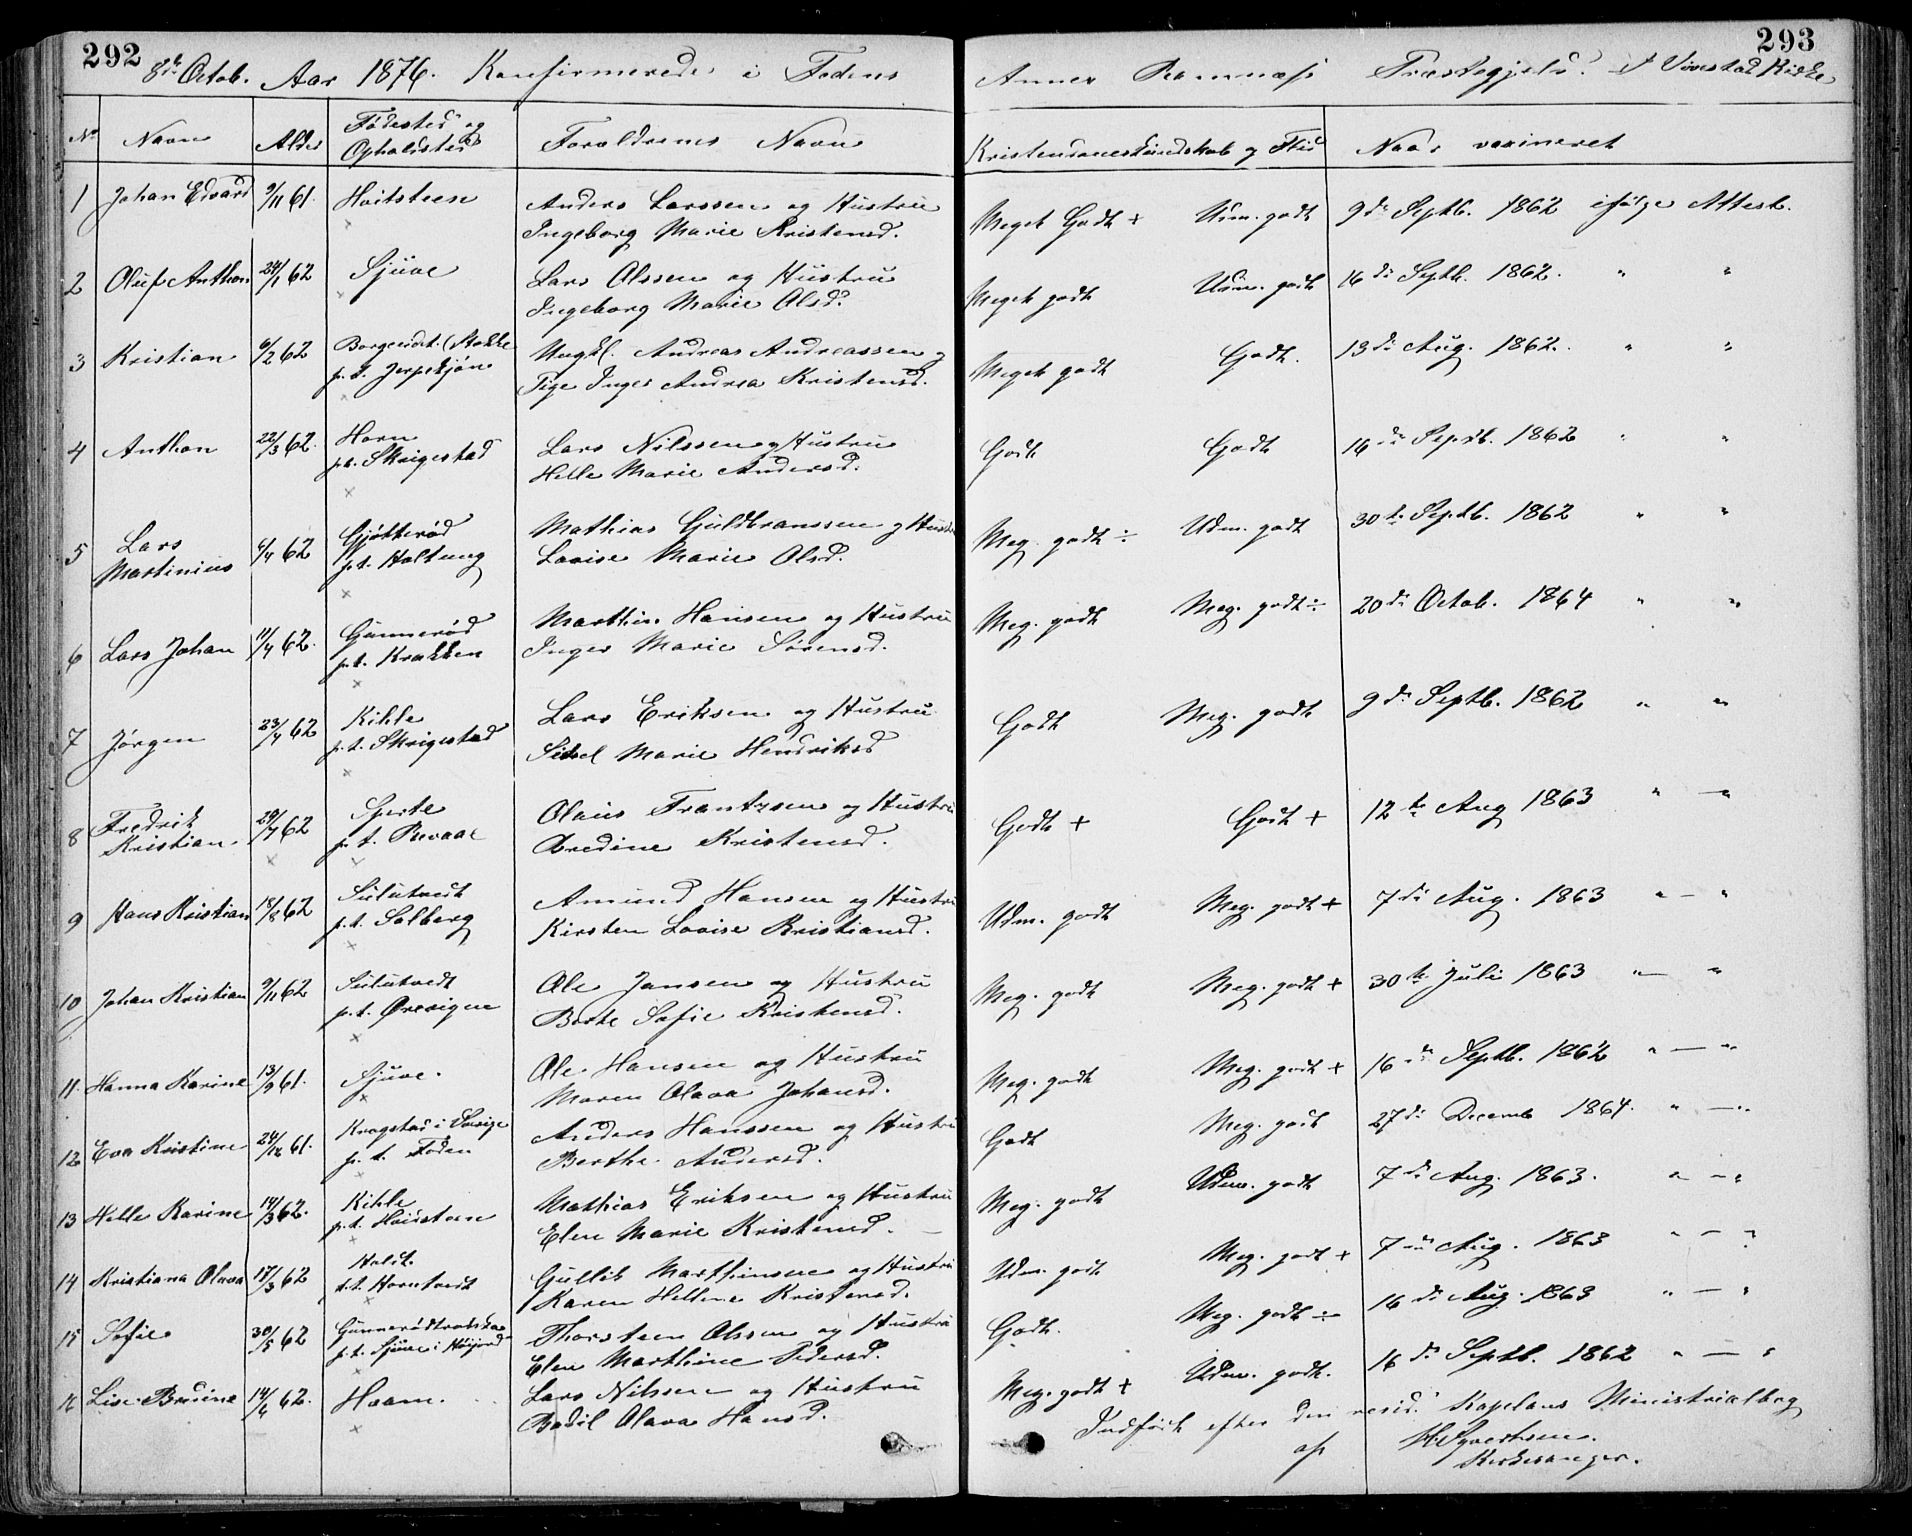 292
293
8de Octob. Aar 1876. Konfirmerede i Fodens
Annex Ramnæss Præstegjeld. I Vivestad Kirke
No Navn Alder Fødested og
Opholdsted Forældrenes Navn
Kristendomskundskab og Flid Naar vaxineret
1 Johan Edvard 9/11 61. Hvitsteen Anders Larssen og Hustru Meget Godt + Udm. godt 9de Septb. 1862 ifølge Attest.
Ingeborg Marie Kristensd.
2 Oluf Anthon 24/1 62 Sjuve Lars Olssen og Hustru Meget godt Udm. godt 16de Septb. 1862. " "
Ingeborg Marie Olsd.
3 Kristian 6/2 62 Borgeredet. (Stokke Ungkl. Andreas Andreassen og Meget godt Godt. 13de Aug. 1862. " "
p.t. Jerpekjøn Pige Inger Andrea Kristensd.
4 Anthon 22/3 62. Horn Lars Nilssen og Hustru Godt Godt 16de Septb. 1862 " "
p.t. Skrigestad Helle Marie Andersd.
5 Lars 6/4 62 Gjøtterød Mathias Guldbranssen og Hustru Meg. godt ÷ Udm. godt 30te Septb. 1862 " "
Martinius p.t. Holtung Lovise Marie Olsd.
6 Lars Johan 11/4 62. Gunnerød Marthin Hansen og Hustru Meg. godt Meg. godt ÷ 20de Octob. 1864 " "
p.t. Krakken Inger Marie Sørensd.
7 Jørgen 23/4 62 Kihle Lars Eriksen og Hustru Godt Meg. godt 9de Septb. 1862 " "
p.t. Skrigestad Sidsel Marie Hendriksd
8 Fredrik 29/7 62 Sperte Olaus Frantzsen og Hustru Godt + Godt + 12te Aug 1863 " — "
Kristian. p.t. Revaal Aredine Kristensd.
9 Hans Kristian 18/8 62 Sulutvedt Amund Hansen og Hustru Udm. godt Meg. godt + 7de Aug. 1863 " — "
p.t. Solberg Kirsten Lovise Kristiansd.
10 Johan Kristian 9/11 62 Sulutvedt Ole Jansen og Hustru Meg. godt Meg. godt + 30te Juli 1863 " — "
p.t. Øverigne Berte Sofie Kristensd.
11. Hanna Karine 13/9 61. Sjuve. Ole Hansen og Hustru Meg. godt Meg. godt + 16de Septb. 1862 " — "
Maren Olava Johansd.
12 Eva Kristine 24/12 61. Krogstad i Sverige Anders Hanssen og Hustru Godt Meg. godt 27de Decemb 1864. " — "
p.t. Foden Berthe Andersd.
13 Helle Karine 14/3 62. Kihle Mathias Eriksen og Hustru Meg. godt Udm. godt 7de Aug. 1863. " — "
p.t. Hvidsteen Elen Marie Kristensd. —
14 Kristiana Olava 17/3 62 Holdt. Gullik Marthinsen og Hustru Udm. godt Meg. godt + 7de Aug. 1863 " — "
p.t. Horntvedt Karen Hellene Kristensd.
15 Sofie 30/5 62 Thorsteen Olssen og Hustru Godt. Meg. godt ÷ 16de Aug. 1863 " — "
p.t. Sjuve i Høijord Elen Marthine Pedersd.
16 Lise Bredine 14/6 62. Hvam. Lars Nilssen og Hustru Meg. godt + Udm. godt. 16de Septb. 1862 " — "
Bodil Olava Hansd.
Indført efter den resid. Kapelans Ministrialbog
af H Syvertsen.
Kirkesanger.